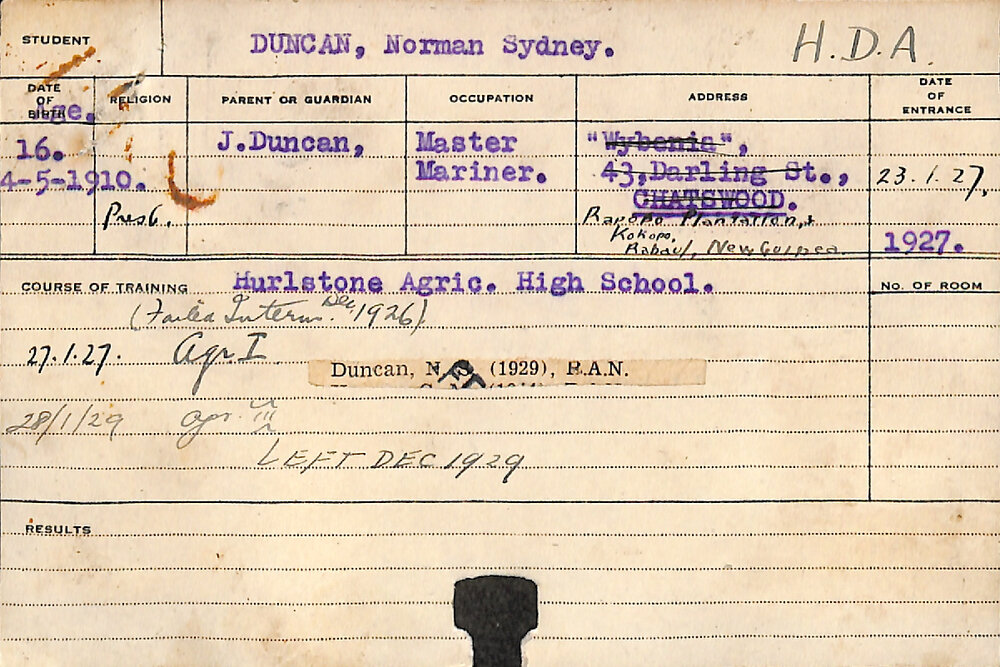 STUDENT DUNCAN, Norman Sydney. H.D.A.
DATE OF BIRTH RELIGION PARENT OR GUARDIAN OCCUPATION ADDRESS DATE OF ENTRANCE
Age.
16. J.Duncan, Master "Wybenia",
4-5-1910. Mariner. 43,Darling St., 23.1.27,
CHATSWOOD.
Presb. Rapopo Plantation,
Kokopo,
Rabaul, New Guinea. 1927.
COURSE OF TRAINING Hurlstone Agric. High School. No. OF ROOM
(Failed Interm. Dec 1926)
27.1.27. Agr. I
Duncan, N. S. (1929), R.A.N.
28/1/29 Agr. III
LEFT DEC 1929
RESULTS